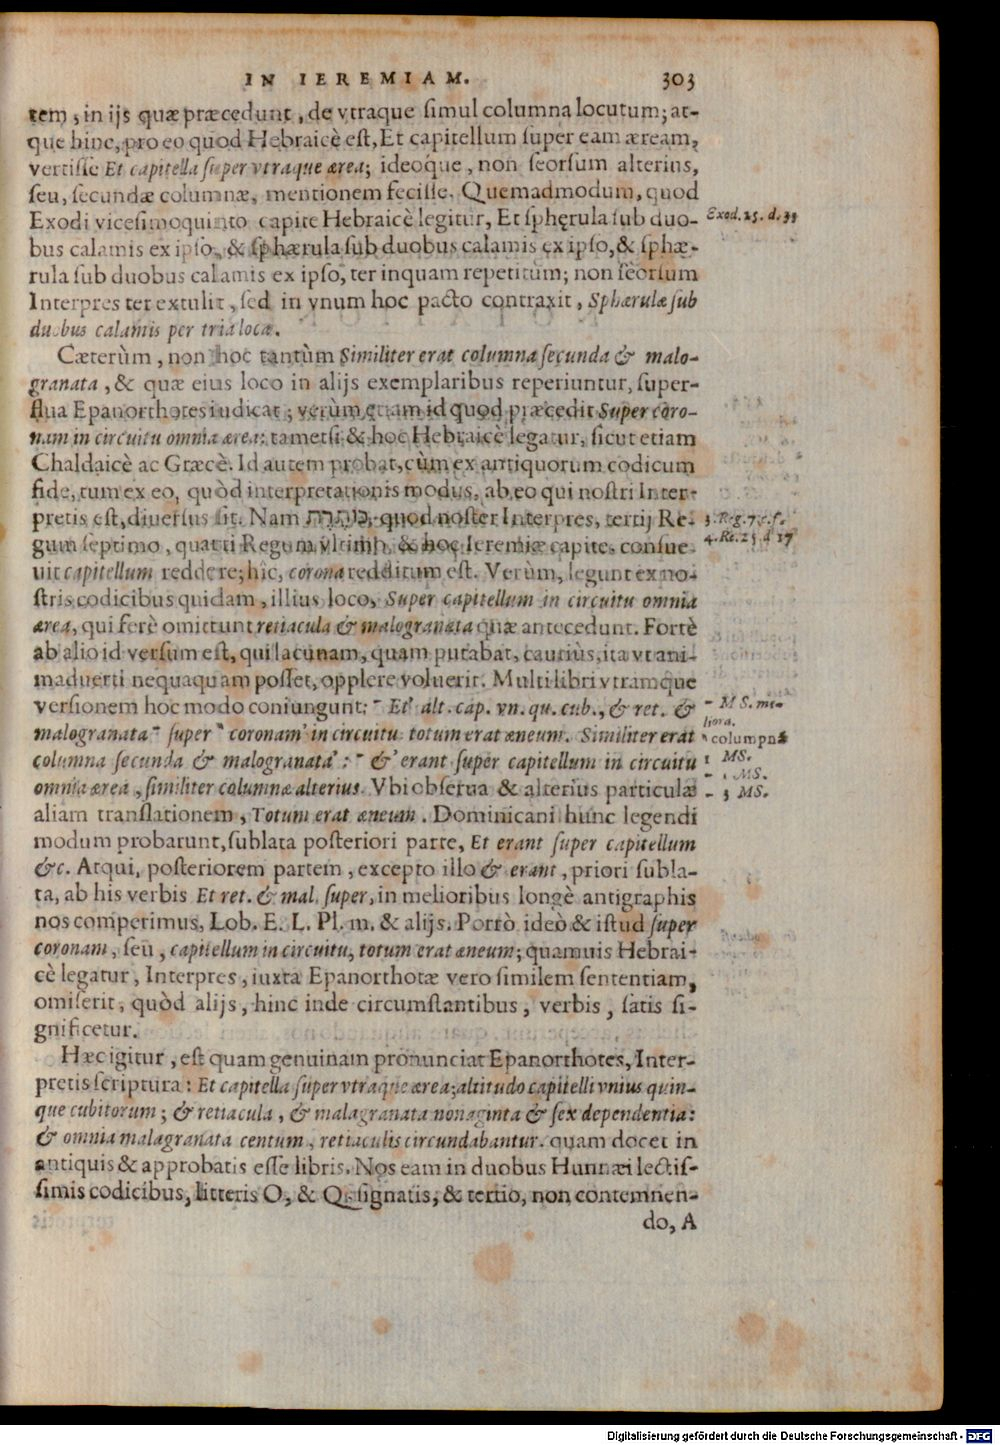 IN IEREMIAM. 303
tem, in ijs quæ præcedunt, de vtraque simul columna locutum; at-
que hinc, pro eo quod Hebraicè est, Et capitellum super eam æream,
vertisse Et capitella super vtraque ærea; ideóque, non seorsum alterius,
seu, secundæ columnæ, mentionem fecisse. Quemadmodum, quod
Exodi vicesimoquinto capite Hebraicè legitur, Et sphęrula sub duo-
Exod. 25. d. 33
bus calamis ex ipso, & sphærula sub duobus calamis ex ipso, & sphæ-
rula sub duobus calamis ex ipso, ter inquam repetitum; non seorsum
Interpres ter extulit, sed in vnum hoc pacto contraxit, Sphærulæ sub
duobus calamis per tria loca.
Cæterùm, non hoc tantùm Similiter erat columna secunda & malo-
granata, & quæ eius loco in alijs exemplaribus reperiuntur, super-
flua Epanorthotes iudicat; verùm etiam id quod præcedit Super coro-
nam in circuitu omnia ærea: tametsi & hoc Hebraicè legatur, sicut etiam
Chaldaicè ac Græcè. Id autem probat, cùm ex antiquorum codicum
fide, tum ex eo, quòd interpretationis modus, ab eo qui nostri Inter-
pretis est, diuersus sit. Nam כותרת, quod noster Interpres, tertij Re-
3. Reg. 7. c. f.
gum septimo, quarti Regum vltimo, & hoc Ieremiæ capite, consue-
4. Re. 25 d 17
uit capitellum reddere; hîc, corona redditum est. Verùm, legunt ex no-
stris codicibus quidam, illius loco, Super capitellum in circuitu omnia
ærea, qui ferè omittunt retiacula & malogranata quæ antecedunt. Fortè
ab alio id versum est, qui lacunam, quam putabat, cautiùs, ita vt ani-
maduerti nequaquam posset, opplere voluerit. Multi libri vtramque
versionem hoc modo coniungunt: Et alt. cap. vn. qu. cub., & ret. &
MS. me-
liora.
malogranata super coronam in circuitu totum erat æneum. Similiter erat
columpnæ
columna secunda & malogranata: & erant super capitellum in circuitu
MS.
omnia ærea, similiter columnæ alterius. Vbi obserua & alterius particulæ
1 MS.
3 MS.
aliam translationem, Totum erat æneum. Dominicani hunc legendi
modum probarunt, sublata posteriori parte, Et erant super capitellum
&c. Atqui, posteriorem partem, excepto illo & erant, priori subla-
ta, ab his verbis Et ret. & mal. super, in melioribus longè antigraphis
nos comperimus, Lob. E. L. Pl. m. & alijs. Porrò ideò & istud super
coronam, seu, capitellum in circuitu, totum erat æneum; quamuis Hebrai-
cè legatur, Interpres, iuxta Epanorthotæ vero similem sententiam,
omiserit, quòd alijs, hinc inde circumstantibus, verbis, satis si-
gnificetur.
Hæc igitur, est quam genuinam pronunciat Epanorthotes, Inter-
pretis scriptura: Et capitella super vtraque ærea; altitudo capitelli vnius quin-
que cubitorum; & retiacula, & malagranata nonaginta & sex dependentia:
& omnia malagranata centum, retiaculis circundabantur. quam docet in
antiquis & approbatis esse libris. Nos eam in duobus Hunnæi lectis-
simis codicibus, litteris O, & Q, signatis, & tertio, non contemnen-
do, A
Digitalisierung gefördert durch die Deutsche Forschungsgemeinschaft - DFG